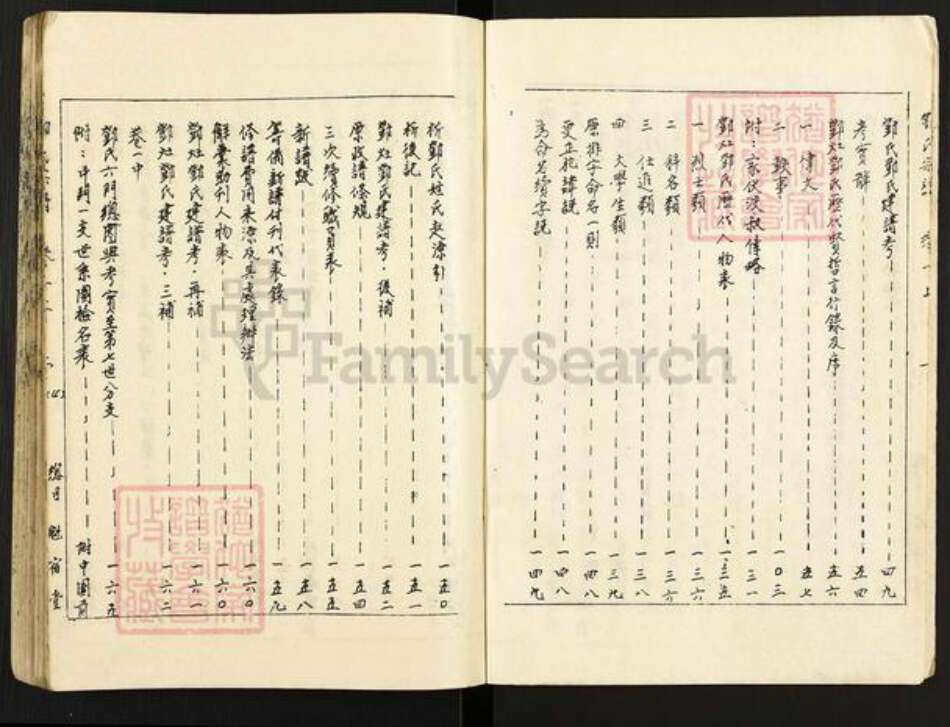 鄧氏鄧氏建譜考 四九
考實辭 五四
鄧灶鄧氏歷代賢哲言行錄及序 五六
一 偉文 五七
二 軼事 一0三
附：家伏波叔傳略 一三一
鄧灶鄧氏歷代人物表 一三五
一 烈士類 一三六
二 科名類 一三六
三 仕進類 一三八
四 大學生類 一三九
原排字命名一則 一四八
更正花諱說 一四八
為命名續字說 一四九
析鄧氏姓氏起源引 一五0
析後記 一五一
鄧灶鄧氏建譜考·後補 一五二
原政譜條規 一五四
三次續修職員表 一五五
新譜跋 一五八
籌備新譜付刊代表錄 一五九
修譜費用來源及其處理辦法 一六0
解囊助刊人物表 一六0
鄧灶鄧氏建譜考·再補 一六一
鄧灶鄧氏建譜考·三補 一六二
卷一中
鄧氏六門總圖與考實至第七世八分支 一六五
附：中門一支世系圖檢名表 附中圖前
總目 魁宿堂
FamilySearch